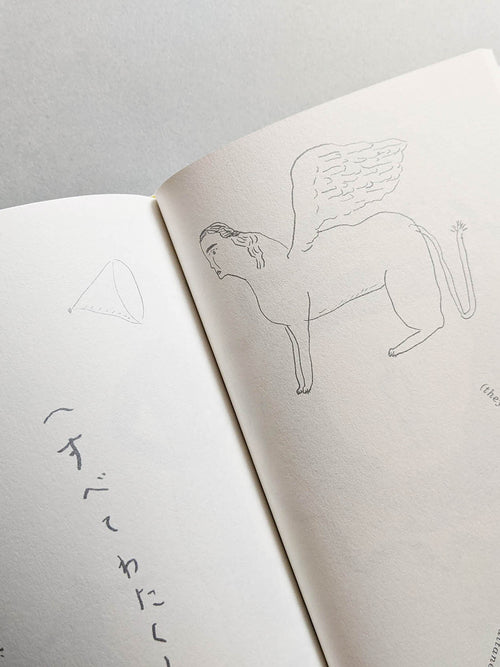 へすべてわたく
(they